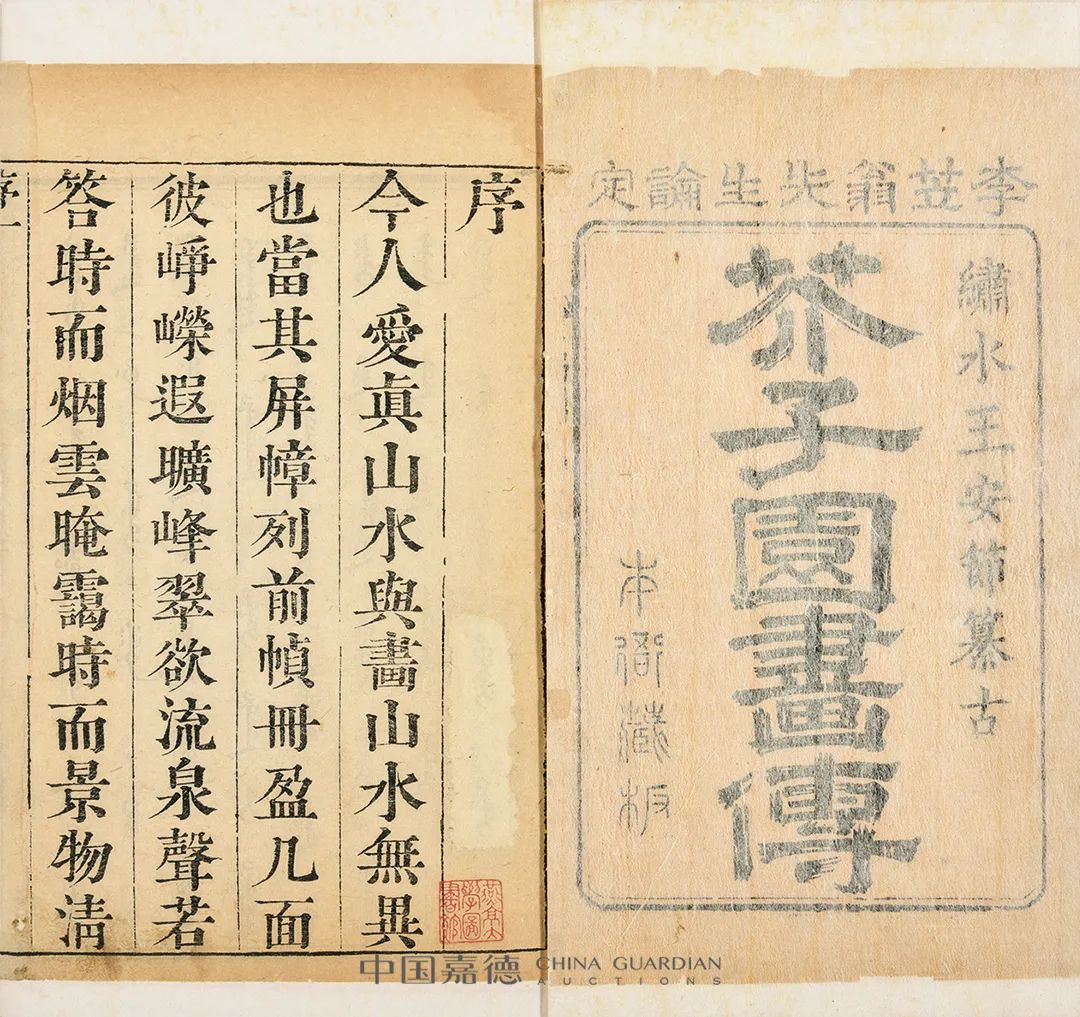 李笠翁先生論定
繡水王安節纂古
芥子園畫傳
本衙藏板
序
今人愛眞山水與畫山水無異
也當其屏幛列前幀冊盈几面
彼崢嶸遐曠峰翠欲流泉聲若
答時而烟雲晻靄時而景物清
序一
中国嘉德 CHINA GUARDIAN
AUCTIONS